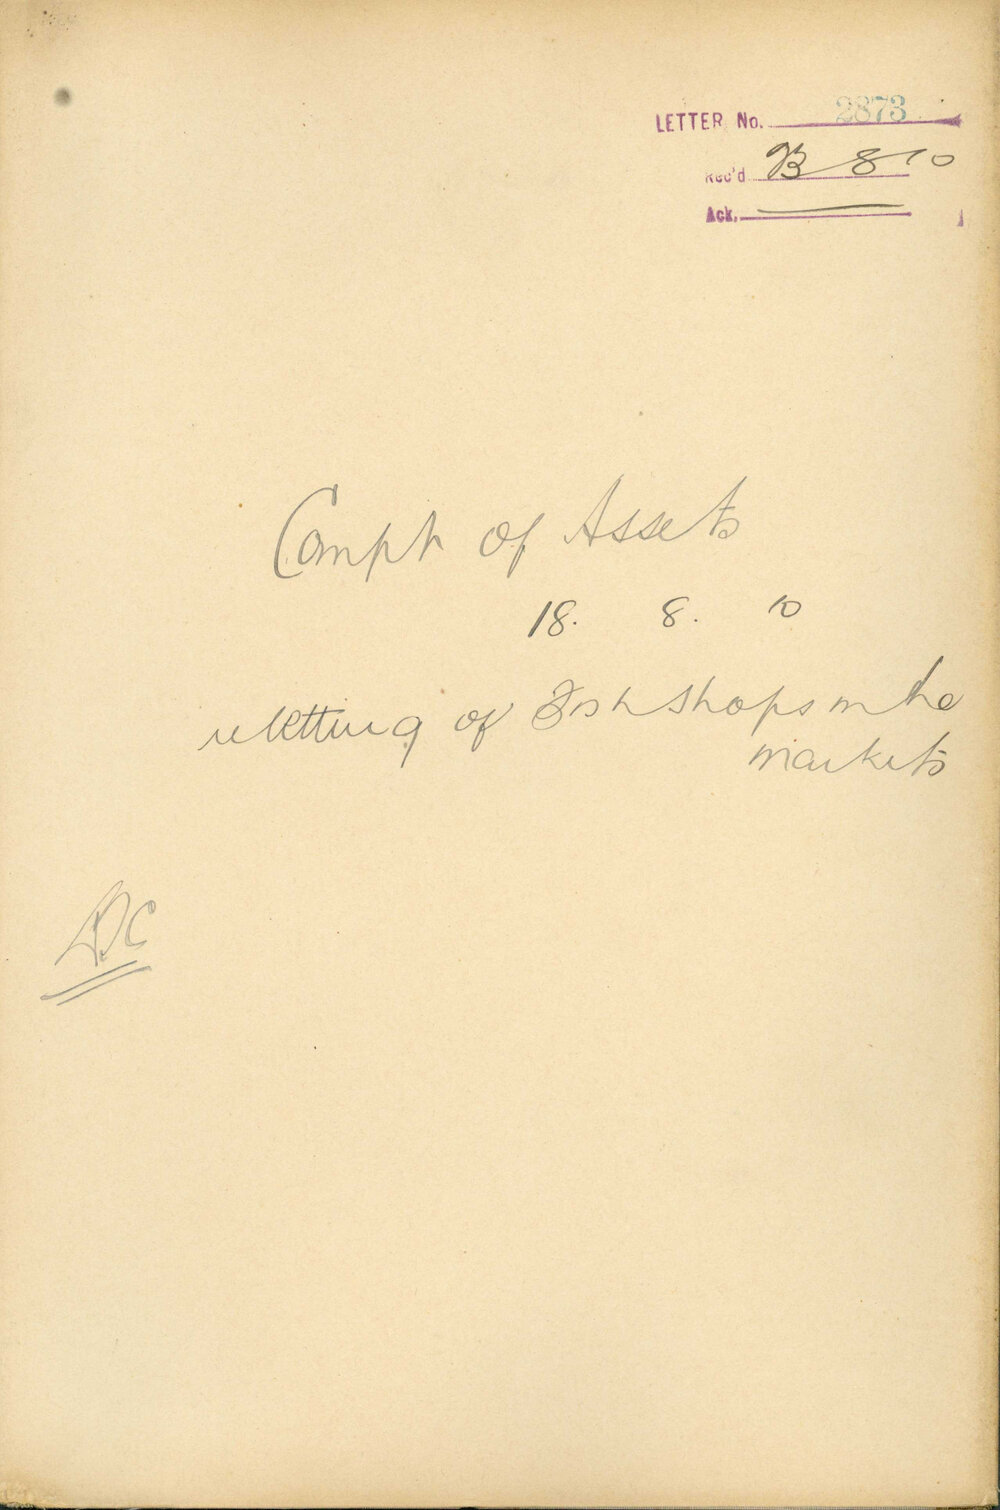 LETTER No. 2873
Rec'd 8 10
Ack.
Compt of Assets
18. 8. 10
reletting of Fish shops in the
markets